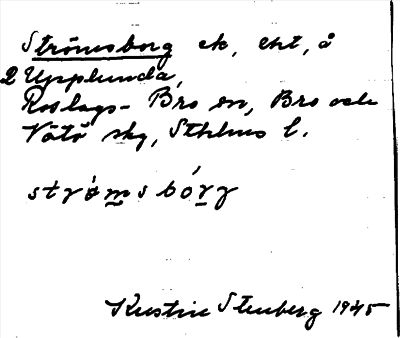 Strömsborg ek, eht, å
2 Upplunda,
Roslags-Bro sn, Bro och
Vätö skg, Sthlms l.
strømsbórg
Kerstin Stenberg 1945